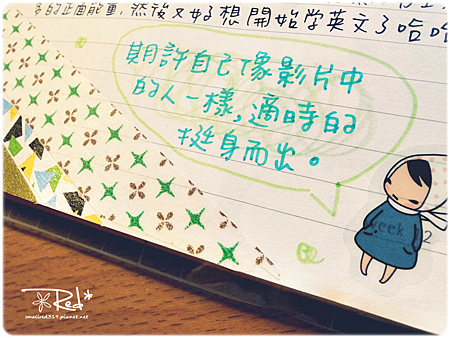 多的正面能量，然後又好想開始学英文了哈哈
期許自己像影片中
的人一樣，適時的
挺身而出。
week 2
Red*
smallred319.pixnet.net